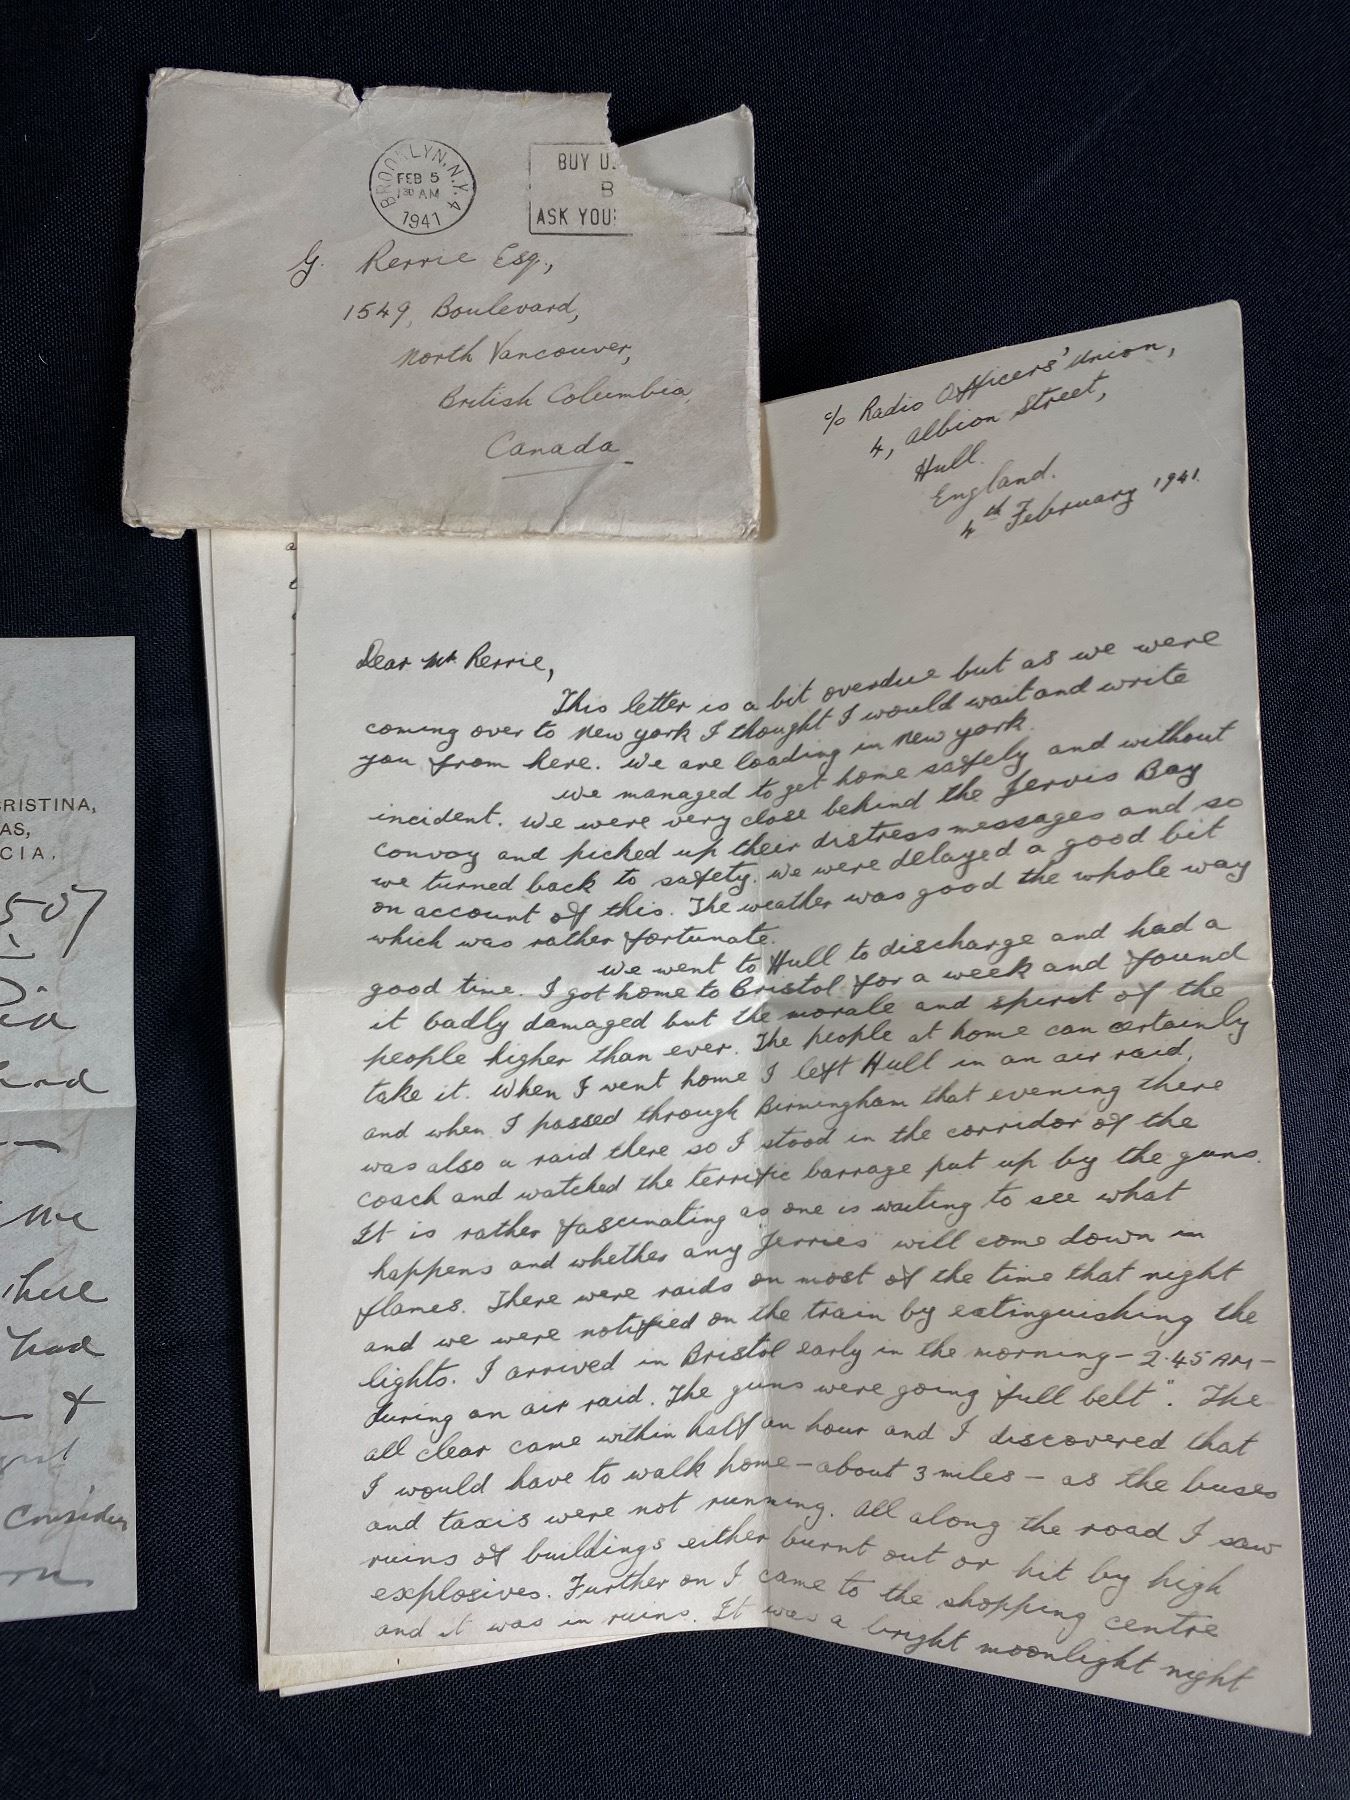 BROOKLYN, N.Y. 4
FEB 5
30 AM
1941
BUY U.
B
ASK YOU
G. Rerrie Esq.,
1549, Boulevard,
North Vancouver,
British Columbia,
Canada
c/o Radio Officers' Union,
4, Albion Street,
Hull.
England.
4th February 1941.
Dear Mr Rerrie,
This letter is a bit overdue but as we were
coming over to New York I thought I would wait and write
you from here. We are loading in New York.
We managed to get home safely and without
incident. We were very close behind the Jervis Bay
convoy and picked up their distress messages and so
we turned back to safety. We were delayed a good bit
on account of this. The weather was good the whole way
which was rather fortunate.
We went to Hull to discharge and had a
good time. I got home to Bristol for a week and found
it badly damaged but the morale and spirit of the
people higher than ever. The people at home can certainly
take it. When I went home I left Hull in an air raid,
and when I passed through Birmingham that evening there
was also a raid there so I stood in the corridor of the
coach and watched the terrific barrage put up by the guns.
It is rather fascinating as one is waiting to see what
happens and whether any "Jerries" will come down in
flames. There were raids on most of the time that night
and we were notified on the train by extinguishing the
lights. I arrived in Bristol early in the morning – 2.45 AM –
during an air raid. The guns were going "full belt". The
all clear came within half an hour and I discovered that
I would have to walk home – about 3 miles – as the buses
and taxis were not running. All along the road I saw
ruins of buildings either burnt out or hit by high
explosives. Further on I came to the shopping centre
and it was in ruins. It was a bright moonlight night
CRISTINA,
AS,
CIA.
had
&
Consider